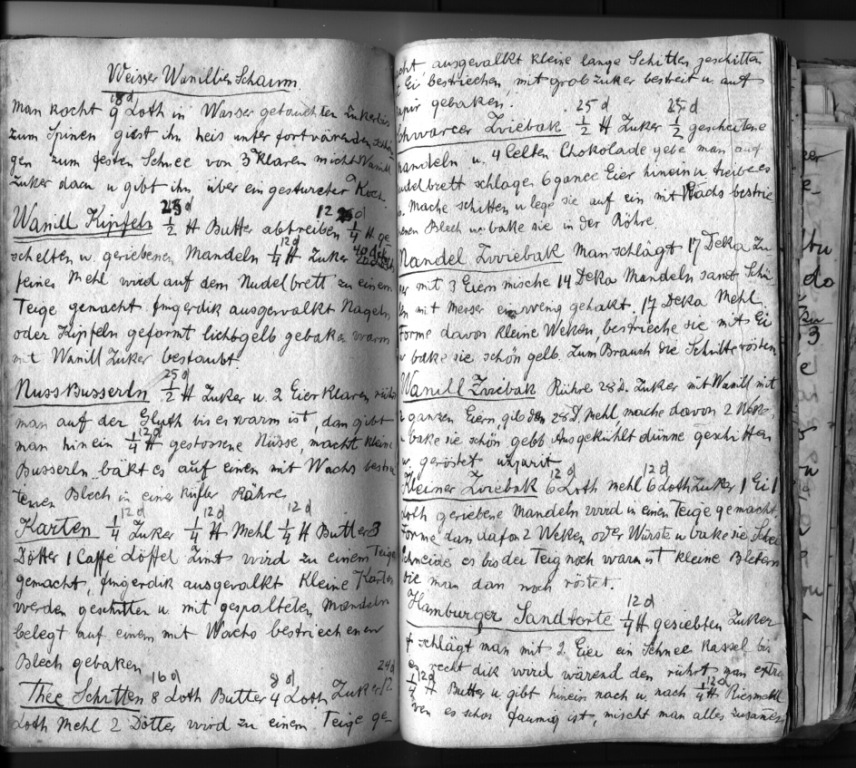 Weisser Wanillien Schaum
18 d
Man kocht 9 Loth in Wasser getauchten Zuker bis
zum Spinen giest ihn heis unter fortwärenden
gen zum festen Schnee von 3 Klaren mischt Wanill
Zuker dazu u gibt ihn über ein gestürzter Koch.
25 d 12 d
Wanill Kipfeln ½ ℔ Butter abtreiben ¼ ℔ ge
12 d
schelten u. geriebenen Mandeln ¼ ℔ Zuker
feines Mehl wird auf dem Nudelbrett zu einem
Teige gemacht fingerdik ausgevalkt Nageln
oder Kipfeln geformt lichtgelb gebaken warm
mit Wanill Zuker bestaubt.
25 d
Nuss Busserln ½ ℔ Zuker u. 2 Eier Klaren rührt
man auf der Gluth bis er warm ist, dan gibt
12 d
man hinein ¼ ℔ gestossene Nüsse, macht kleine
Busserln bäkt es auf einen mit Wachs bestri
tenen Blech in einer Kühler Röhre
12 d 12 d 12 d
Karten ¼ Zuker ¼ ℔ Mehl ¼ ℔ Butter 3
Dötter 1 Caffé Löffel Zimt wird zu einem Teige
gemacht, fingerdik ausgevalkt kleine Karten
werden geschitten u mit gespalteten Mandeln
belegt auf einem mit Wachs bestriechenen
Blech gebaken
16 d 8 d 24 d
Thee Schitten 8 Loth Butter 4 Loth Zuker 12
Loth Mehl 2 Dötter wird zu einem Teige ge-
macht ausgevalkt kleine lange Schitten geschitten
Ei bestriechen, mit grob Zuker bestreit u auf
Papir gebaken.
25 d 25 d
Schwarcer Zviebak ½ ℔ Zuker ½ gescheltene
Mandeln u. 4 Zelten Chokolade gebe man auf
Nudelbrett schlage 6 gance Eier hinein u treibe es
Mache schitten u lege sie auf ein mit Wachs bestrie
enen Blech u bake sie in der Röhre.
Mandel Zwiebak Man schlägt 17 Deka Zu
er mit 3 Eiern mische 14 Deka Mandeln samt Schä
len mit Messer ein wenig gehakt. 17 Deka Mehl.
Forme davon kleine Weken, bestrieche sie mit Ei
u bake sie schön gelb. Zum Brauch die Schitte rösten
Wanill Zviebak Rühre 28 d. Zuker mit Wanill mit
ganzen Eiern, gib dan 28 d Mehl mache davon 2 Weken,
bake sie schön gelb Ausgekühlt dünne geschitten
u. geröstet
12 d 12 d
Kleiner Zviebak 6 Loth mehl 6 Loth Zuker 1 Ei 1
Loth geriebene Mandeln wird u einen Teige gemacht
Forme dan dafon 2 Weken oder Würste u bake sie
Schneide es bis der Teig noch warm ist kleine Bletern
die man dan noch röstet.
12 d
Hamburger Sandtorte ¼ ℔ gesiebten Zuker
schlägt man mit 2 Eier ein Schnee Kessel bis
es recht dik wird wärend den rührt man extra
12 d 12 d
¼ ℔ Butter u gibt hinein nach u nach ¼ ℔ Riesmehl
wen es schos flaumig ist, mischt man alles zusamen